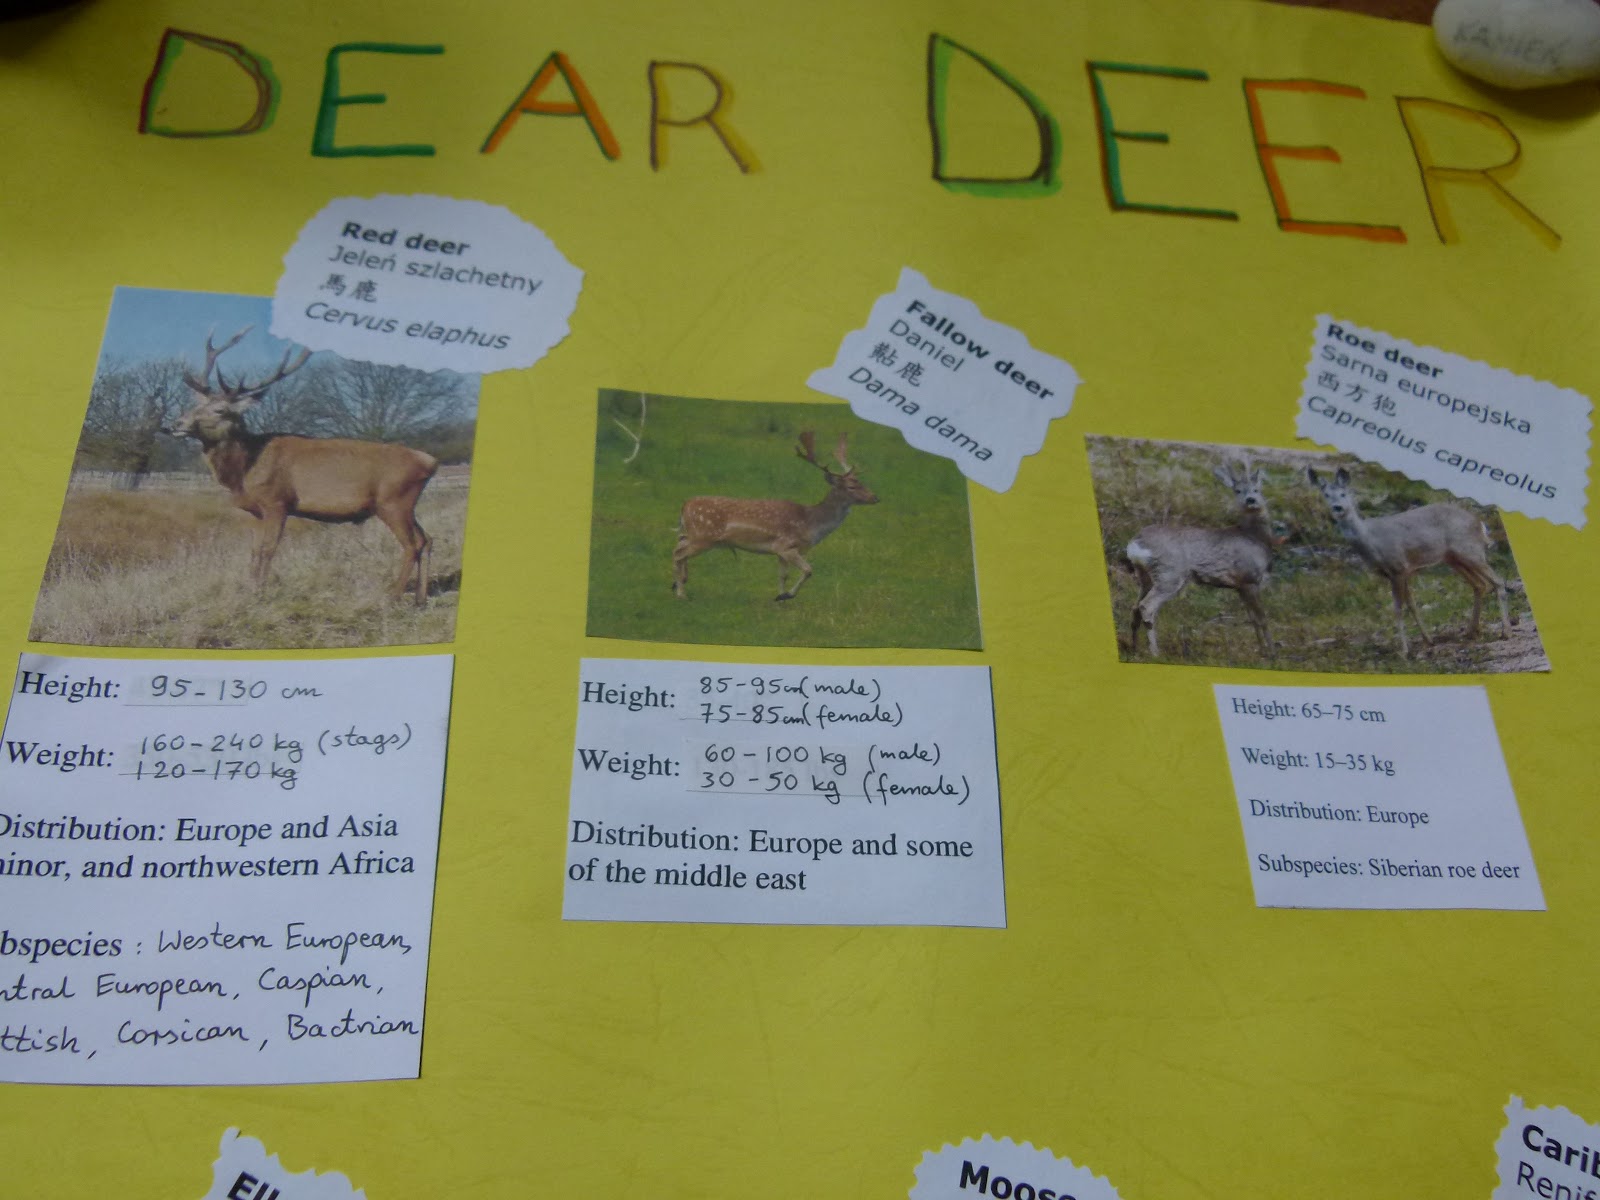 DEAR DEER
KAMIEŃ
Red deer
Jeleń szlachetny
馬鹿
Cervus elaphus
Fallow deer
Daniel
黇鹿
Dama dama
Roe deer
Sarna europejska
西方狍
Capreolus capreolus
Height: 95-130 cm
Weight: 160-240 kg (stags)
120-170 kg
Distribution: Europe and Asia
minor, and northwestern Africa
bspecies : Western European,
ntral European, Caspian,
ttish, Corsican, Bactrian
Height: 85-95cm (male)
75-85cm (female)
Weight: 60-100 kg (male)
30-50 kg (female)
Distribution: Europe and some
of the middle east
Height: 65–75 cm
Weight: 15–35 kg
Distribution: Europe
Subspecies: Siberian roe deer
Moose
Carib
Renif